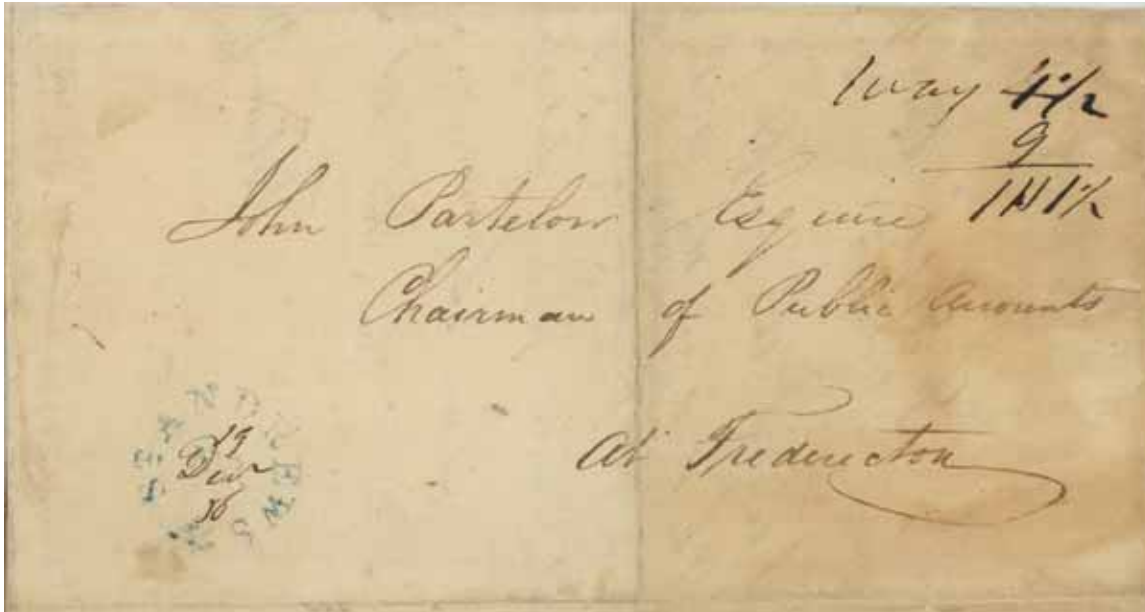 Way 4½
9
1/1½
John Partelow Esquire
Chairman of Public Accounts
At Fredericton
ST ANDREWS
19
Decr
36